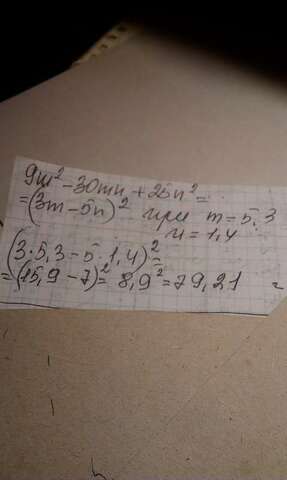 9m² - 30mn + 25n² =
= (3m - 5n)² при m = 5,3
n = 1,4
(3·5,3 - 5·1,4)² =
= (15,9 - 7)² = 8,9² = 79,21 =